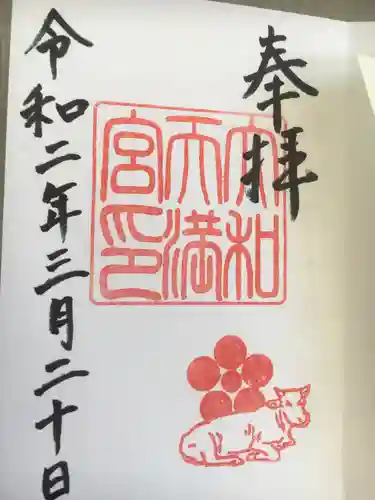 奉拝
大和
天満
宮印
令和二年三月二十日